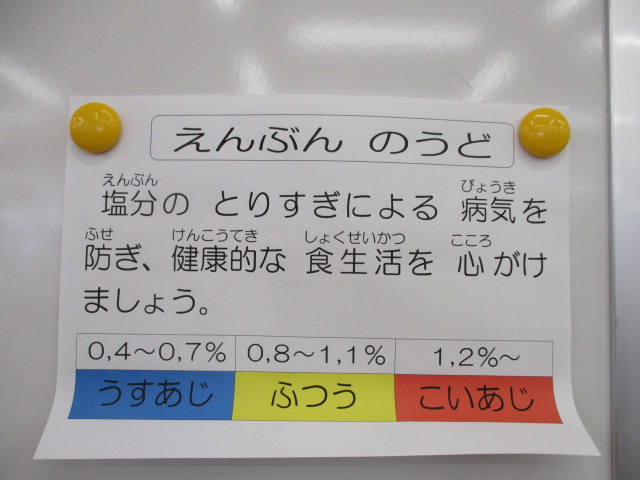 えんぶん のうど
えんぶん びょうき
塩分の とりすぎによる 病気を
ふせ けんこうてき しょくせいかつ こころ
防ぎ、健康的な 食生活を 心がけ
ましょう。
0,4～0,7% 0,8～1,1% 1,2%～
うすあじ ふつう こいあじ